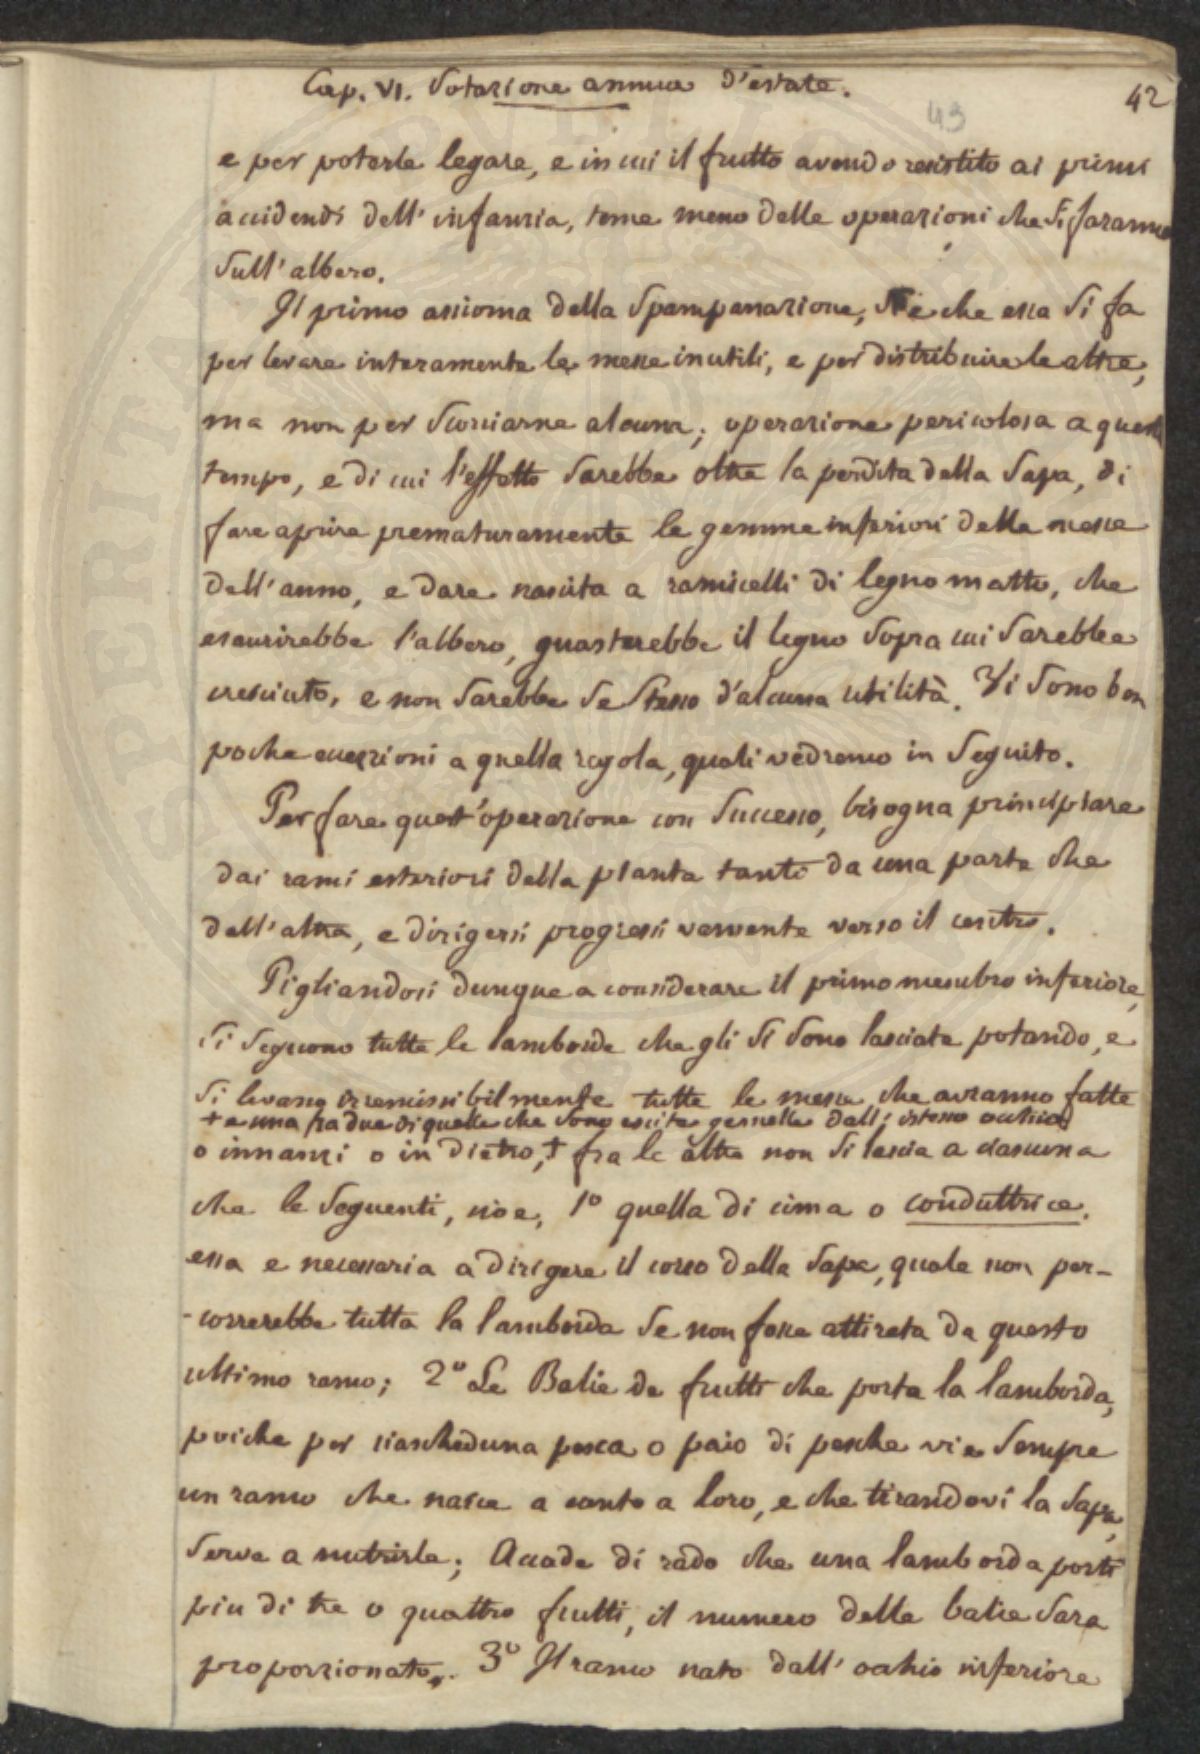 Cap. VI. Potazione annua d'estate.
42
43
e per poterle legare, e in cui il frutto avendo resistito ai primi
accidenti dell' infanzia, teme meno delle operazioni che si faranno
sull' albero.
Il primo assioma della spampanazione, è che essa si fa
per levare interamente le messe inutili, e per distribuire le altre,
ma non per scorciarne alcuna; operazione pericolosa a questo
tempo, e di cui l'effetto sarebbe oltre la perdita della sapa, di
fare aprire prematuramente le gemme inferiori delle messe
dell' anno, e dare nascita a ramicelli di legno matto, che
esaurirebbe l'albero, guasterebbe il legno sopra cui sarebbe
cresciuto, e non sarebbe se stesso d'alcuna utilità. Vi sono ben
poche eccezioni a quella regola, quali vedremo in seguito.
Per fare quest'operazione con successo, bisogna principiare
dai rami esteriori della pianta tanto da una parte che
dall'altra, e dirigersi progressivamente verso il centro.
Pigliandosi dunque a considerare il primo membro inferiore,
si seguono tutte le lamborde che gli si sono lasciate potando, e
si levano irremissibilmente tutte le messe che avranno fatte
+ e una fra due di quelle che sono escite gemelle dall' istesso occhio
o innanzi o in dietro, + fra le altre non si lascia a ciascuna
che le seguenti, cioe, 1º quella di cima o conduttrice.
essa e necessaria a dirigere il corso della sapa, quale non per-
-correrebbe tutta la lamborda se non fosse attirata da questo
ultimo ramo; 2º Le Balie de frutti che porta la lamborda,
poiche per ciascheduna pesca o paio di pesche vi e sempre
un ramo che nasce a canto a loro, e che tirandovi la sapa,
serve a nutrirle; Accade di rado che una lamborda porti
piu di tre o quattro frutti, il numero delle balie sara
proporzionato. 3º Il ramo nato dall' ochio inferiore